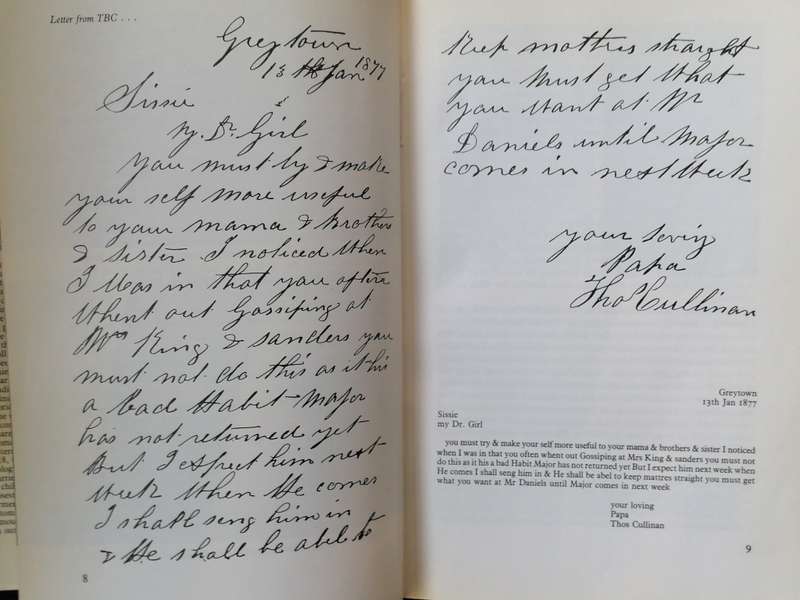 Letter from TBC . . .
Greytown
13th Jan 1877
Sissie
my Dr. Girl
you must try & make
your self more useful
to your mama & brothers
& sister I noticed when
I was in that you often
whent out Gossiping at
Mrs King & sanders you
must not do this as it his
a bad Habit Major
has not returned yet
But I expect him next
week when He comes
I shall seng him in
& He shall be abel to
8
Keep mattres straight
you must get what
you want at Mr
Daniels until Major
comes in next week
your loving
Papa
Thos Cullinan
Greytown
13th Jan 1877
Sissie
my Dr. Girl
you must try & make your self more useful to your mama & brothers & sister I noticed
when I was in that you often whent out Gossiping at Mrs King & sanders you must not
do this as it his a bad Habit Major has not returned yet But I expect him next week when
He comes I shall seng him in & He shall be abel to keep mattres straight you must get
what you want at Mr Daniels until Major comes in next week
your loving
Papa
Thos Cullinan
9